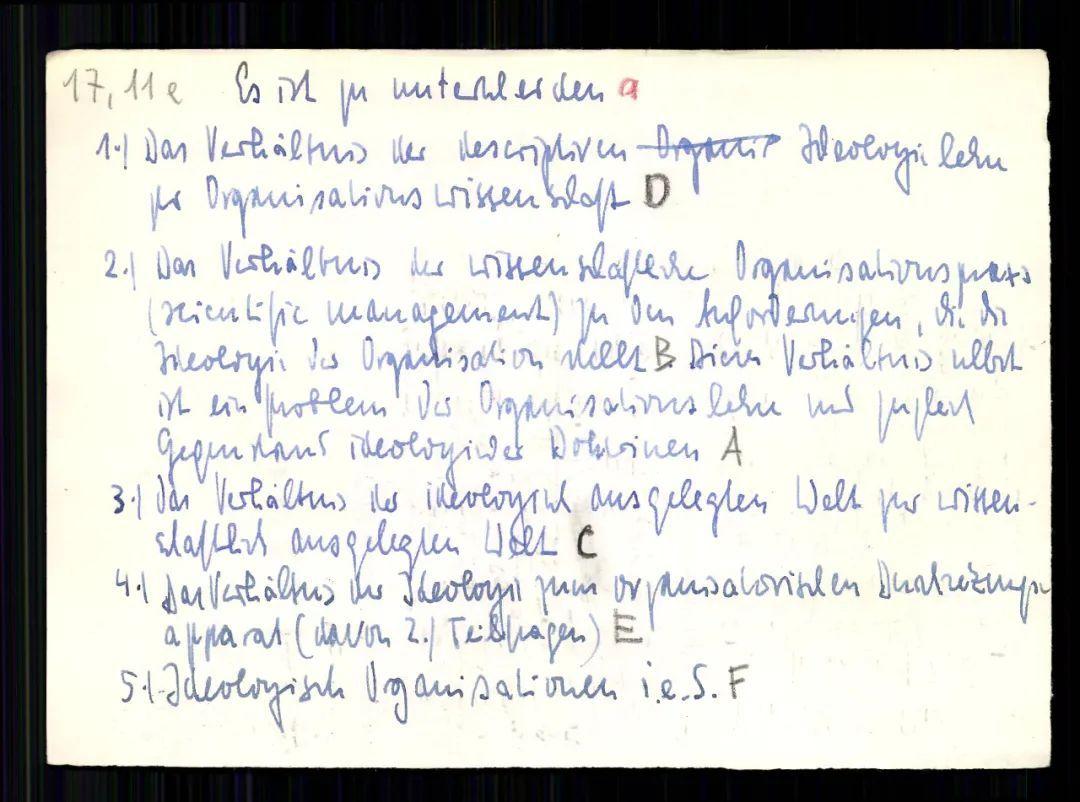 17,11e Es ist zu unterscheiden a
1.) Das Verhältnis der descriptiven Organi Ideologielehre
zur Organisationswissenschaft D
2.) Das Verhältnis der wissenschaftliche Organisationspraxis
(scientific management) zu den Anforderungen, die die
Ideologie der Organisation stellt B Dieses Verhältnis selbst
ist ein Problem der Organisationslehre und zugleich
Gegenstand ideologischer Doktrinen A
3.) Das Verhältnis der ideologisch ausgelegten Welt zur wissen-
schaftlich ausgelegten Welt C
4.) Das Verhältnis der Ideologie zum organisatorischen Durchsetzungs
apparat (davon 2.) Teilfragen) E
5.) Ideologische Organisationen i.e.S. F